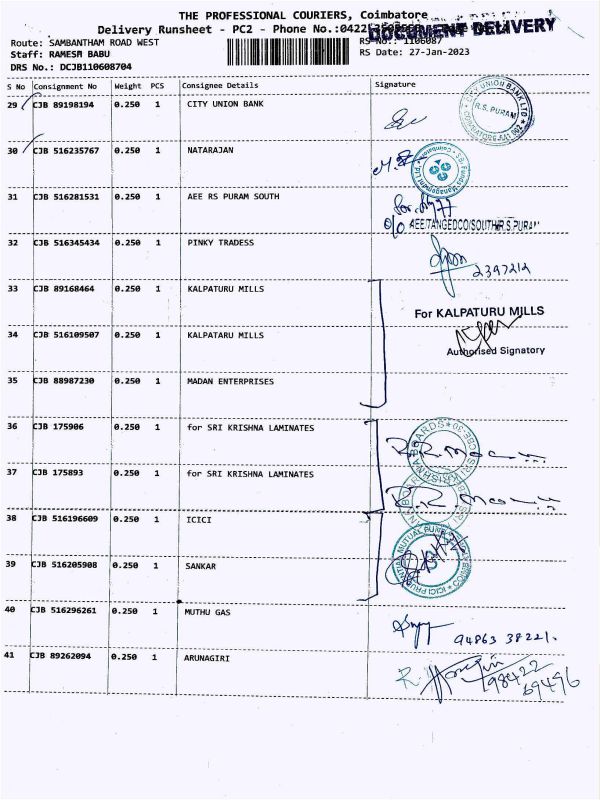 THE PROFESSIONAL COURIERS, Coimbatore
Delivery Runsheet - PC2 - Phone No.:0422
DOCUMENT DELIVERY
Route: SAMBANTHAM ROAD WEST
RS No.: 1106087
Staff: RAMESH BABU
RS Date: 27-Jan-2023
DRS No.: DCJB110608704
S No Consignment No Weight PCS Consignee Details Signature
29 CJB 89198194 0.250 1 CITY UNION BANK
CITY UNION BANK LTD
R.S. PURAM
30 CJB 516235767 0.250 1 NATARAJAN
31 CJB 516281531 0.250 1 AEE RS PURAM SOUTH
O/O AEE/TANGEDCO/SOUTH/R.S.PURAM
32 CJB 516345434 0.250 1 PINKY TRADESS
2397212
33 CJB 89168464 0.250 1 KALPATURU MILLS
For KALPATURU MILLS
34 CJB 516109507 0.250 1 KALPATARU MILLS
Authorised Signatory
35 CJB 88987230 0.250 1 MADAN ENTERPRISES
36 CJB 175906 0.250 1 for SRI KRISHNA LAMINATES
37 CJB 175893 0.250 1 for SRI KRISHNA LAMINATES
38 CJB 516196609 0.250 1 ICICI
39 CJB 516205908 0.250 1 SANKAR
40 CJB 516296261 0.250 1 MUTHU GAS
94863 38221.
41 CJB 89262094 0.250 1 ARUNAGIRI
98422
69496